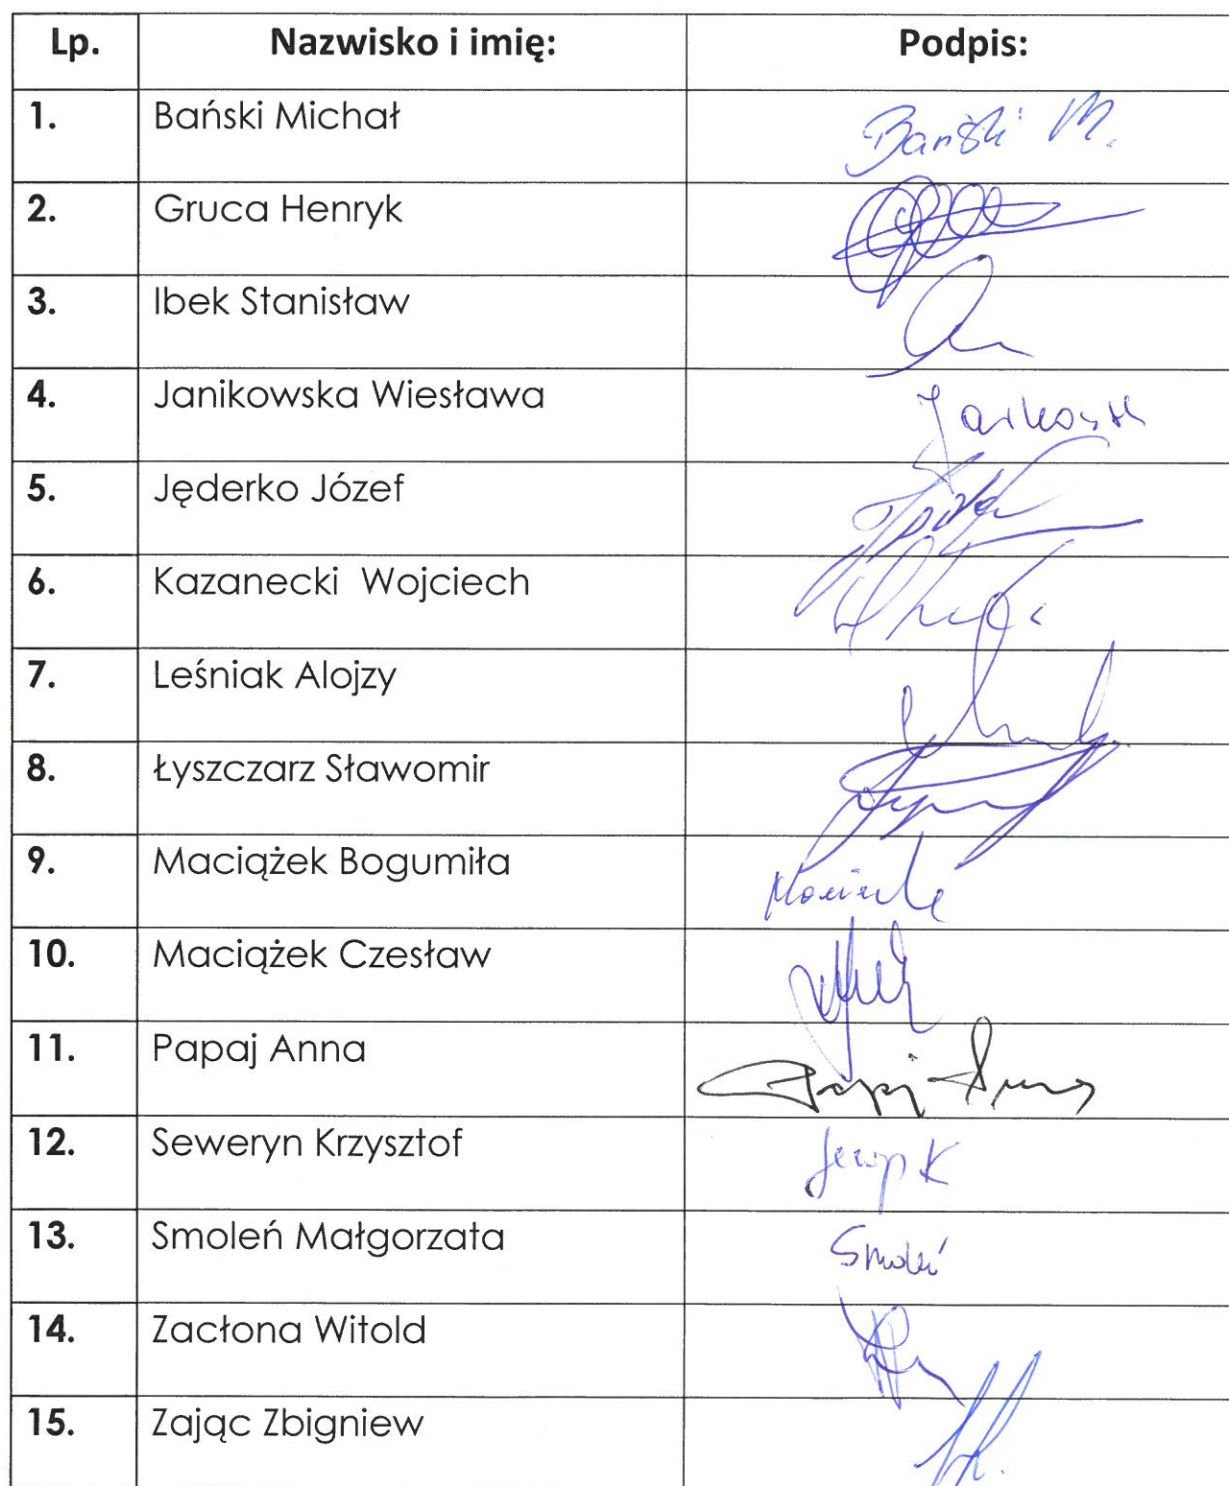 Lp. Nazwisko i imię: Podpis:
1. Bański Michał Bański M.
2. Gruca Henryk
3. Ibek Stanisław
4. Janikowska Wiesława
5. Jęderko Józef
6. Kazanecki Wojciech
7. Leśniak Alojzy
8. Łyszczarz Sławomir
9. Maciążek Bogumiła
10. Maciążek Czesław
11. Papaj Anna Papaj Anna
12. Seweryn Krzysztof
13. Smoleń Małgorzata Smoleń
14. Zacłona Witold
15. Zając Zbigniew